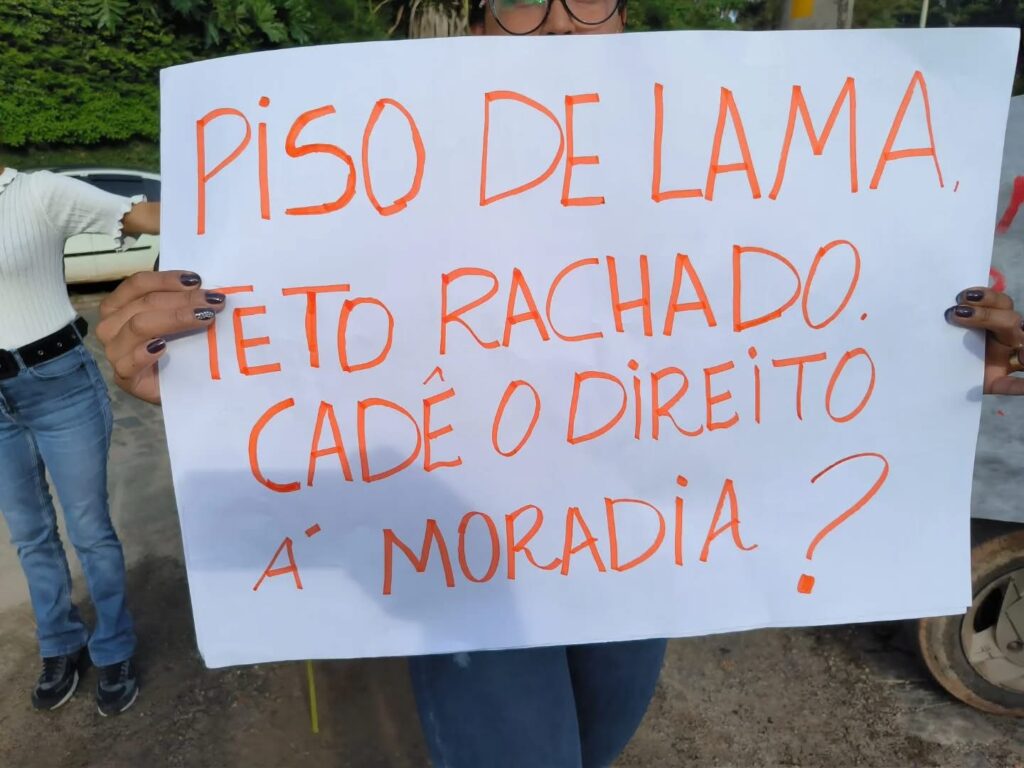 PISO DE LAMA,
TETO RACHADO.
CADÊ O DIREITO
Á MORADIA?